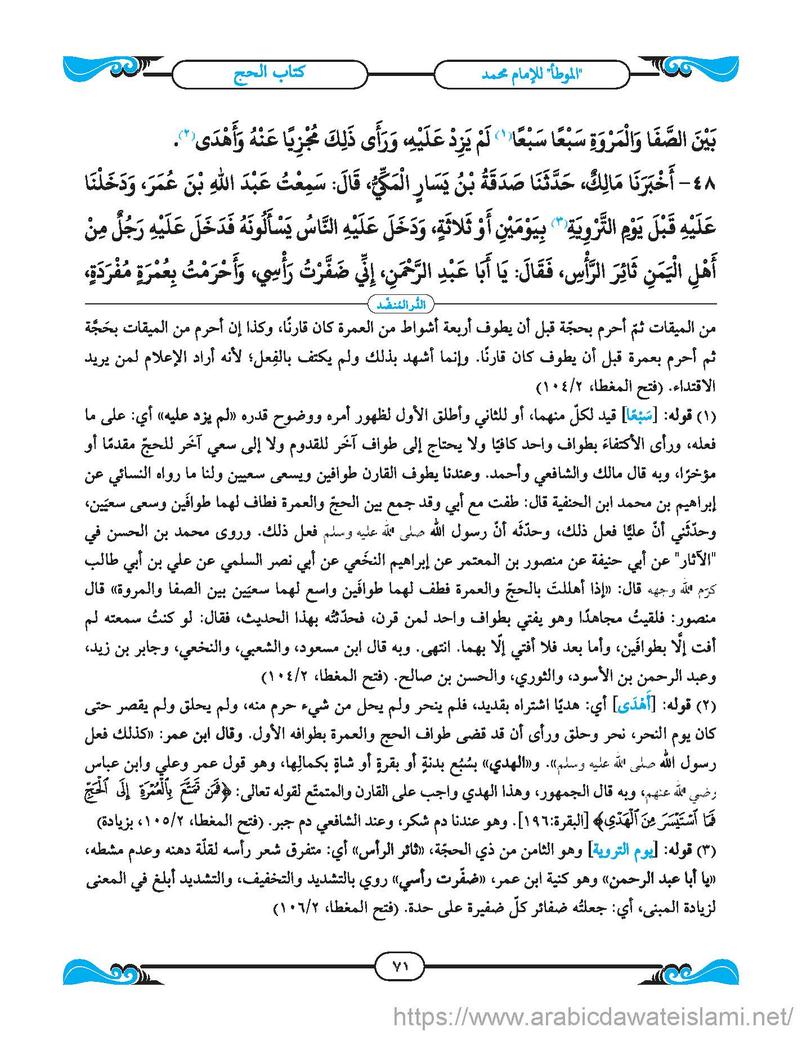 "الموطأ" للإمام محمد
كتاب الحج
بَيْنَ الصَّفَا وَالْمَرْوَةِ سَبْعًا سَبْعًا(١) لَمْ يَزِدْ عَلَيْهِ، وَرَأَى ذَلِكَ مُجْزِيًا عَنْهُ وَأَهْدَى(٢).
٤٨- أَخْبَرَنَا مَالِكٌ، حَدَّثَنَا صَدَقَةُ بْنُ يَسَارٍ الْمَكِّيُّ، قَالَ: سَمِعْتُ عَبْدَ اللهِ بْنَ عُمَرَ، وَدَخَلْنَا
عَلَيْهِ قَبْلَ يَوْمِ التَّرْوِيَةِ(٣) بِيَوْمَيْنِ أَوْ ثَلَاثَةٍ، وَدَخَلَ عَلَيْهِ النَّاسُ يَسْأَلُونَهُ فَدَخَلَ عَلَيْهِ رَجُلٌ مِنْ
أَهْلِ الْيَمَنِ ثَائِرَ الرَّأْسِ، فَقَالَ: يَا أَبَا عَبْدِ الرَّحْمَنِ، إِنِّي ضَفَّرْتُ رَأْسِي، وَأَحْرَمْتُ بِعُمْرَةٍ مُفْرَدَةٍ،
الدُّر المُنضّد
من الميقات ثمّ أحرم بحجّة قبل أن يطوف أربعة أشواط من العمرة كان قارنًا، وكذا إن أحرم من الميقات بحَجَّة
ثم أحرم بعمرة قبل أن يطوف كان قارنًا. وإنما أشهد بذلك ولم يكتف بالفِعل؛ لأنه أراد الإعلام لمن يريد
الاقتداء. (فتح المغطا، ١٠٤/٢)
(١) قوله: [سَبْعًا] قيد لكلّ منهما، أو للثاني وأطلق الأول لظهور أمره ووضوح قدره «لم يزد عليه» أي: على ما
فعله، ورأى الأكتفاءَ بطواف واحد كافيًا ولا يحتاج إلى طواف آخَر للقدوم ولا إلى سعي آخَر للحجّ مقدمًا أو
مؤخرًا، وبه قال مالك والشافعي وأحمد. وعندنا يطوف القارن طوافين ويسعى سعيين ولنا ما رواه النسائي عن
إبراهيم بن محمد ابن الحنفية قال: طفت مع أبي وقد جمع بين الحجّ والعمرة فطاف لهما طوافَين وسعى سعيَين،
وحدّثَني أنّ عليًّا فعل ذلك، وحدّثه أنّ رسول الله صلى الله عليه وسلم فعل ذلك. وروى محمد بن الحسن في
"الآثار" عن أبي حنيفة عن منصور بن المعتمر عن إبراهيم النخَعي عن أبي نصر السلمي عن علي بن أبي طالب
كرّم الله وجهه قال: «إذا أهللتَ بالحجّ والعمرة فطف لهما طوافَين واسع لهما سعيَين بين الصفا والمروة» قال
منصور: فلقيتُ مجاهدًا وهو يفتي بطواف واحد لمن قرن، فحدّثتُه بهذا الحديث، فقال: لو كنتُ سمعته لم
أفت إلَّا بطوافَين، وأما بعد فلا أفتي إلّا بهما. انتهى. وبه قال ابن مسعود، والشعبي، والنخعي، وجابر بن زيد،
وعبد الرحمن بن الأسود، والثوري، والحسن بن صالح. (فتح المغطا، ١٠٤/٢)
(٢) قوله: [أَهْدَى] أي: هديًا اشتراه بقديد، فلم ينحر ولم يحل من شيء حرم منه، ولم يحلق ولم يقصر حتى
كان يوم النحر، نحر وحلق ورأى أن قد قضى طواف الحج والعمرة بطوافه الأول. وقال ابن عمر: «كذلك فعل
رسول الله صلى الله عليه وسلم». و«الهدي» بسُبُع بدنةٍ أو بقرةٍ أو شاةٍ بكمالِها، وهو قول عمر وعلي وابن عباس
رضي الله عنهم، وبه قال الجمهور، وهذا الهدي واجب على القارن والمتمتّع لقوله تعالى: ﴿فَمَن تَمَتَّعَ بِٱلْعُمْرَةِ إِلَى ٱلْحَجِّ
فَمَا ٱسْتَيْسَرَ مِنَ ٱلْهَدْيِ﴾ [البقرة:١٩٦]. وهو عندنا دم شكر، وعند الشافعي دم جبر. (فتح المغطا، ١٠٥/٢، بزيادة)
(٣) قوله: [يوم التروية] وهو الثامن من ذي الحجّة، «ثائر الرأس» أي: متفرق شعر رأسه لقلّة دهنه وعدم مشطه،
«يا أبا عبد الرحمن» وهو كنية ابن عمر، «ضفّرت رأسي» روي بالتشديد والتخفيف، والتشديد أبلغ في المعنى
لزيادة المبنى، أي: جعلتُه ضفائر كلّ ضفيرة على حدة. (فتح المغطا، ١٠٦/٢)
٧١
https://www.arabicdawateislami.net/